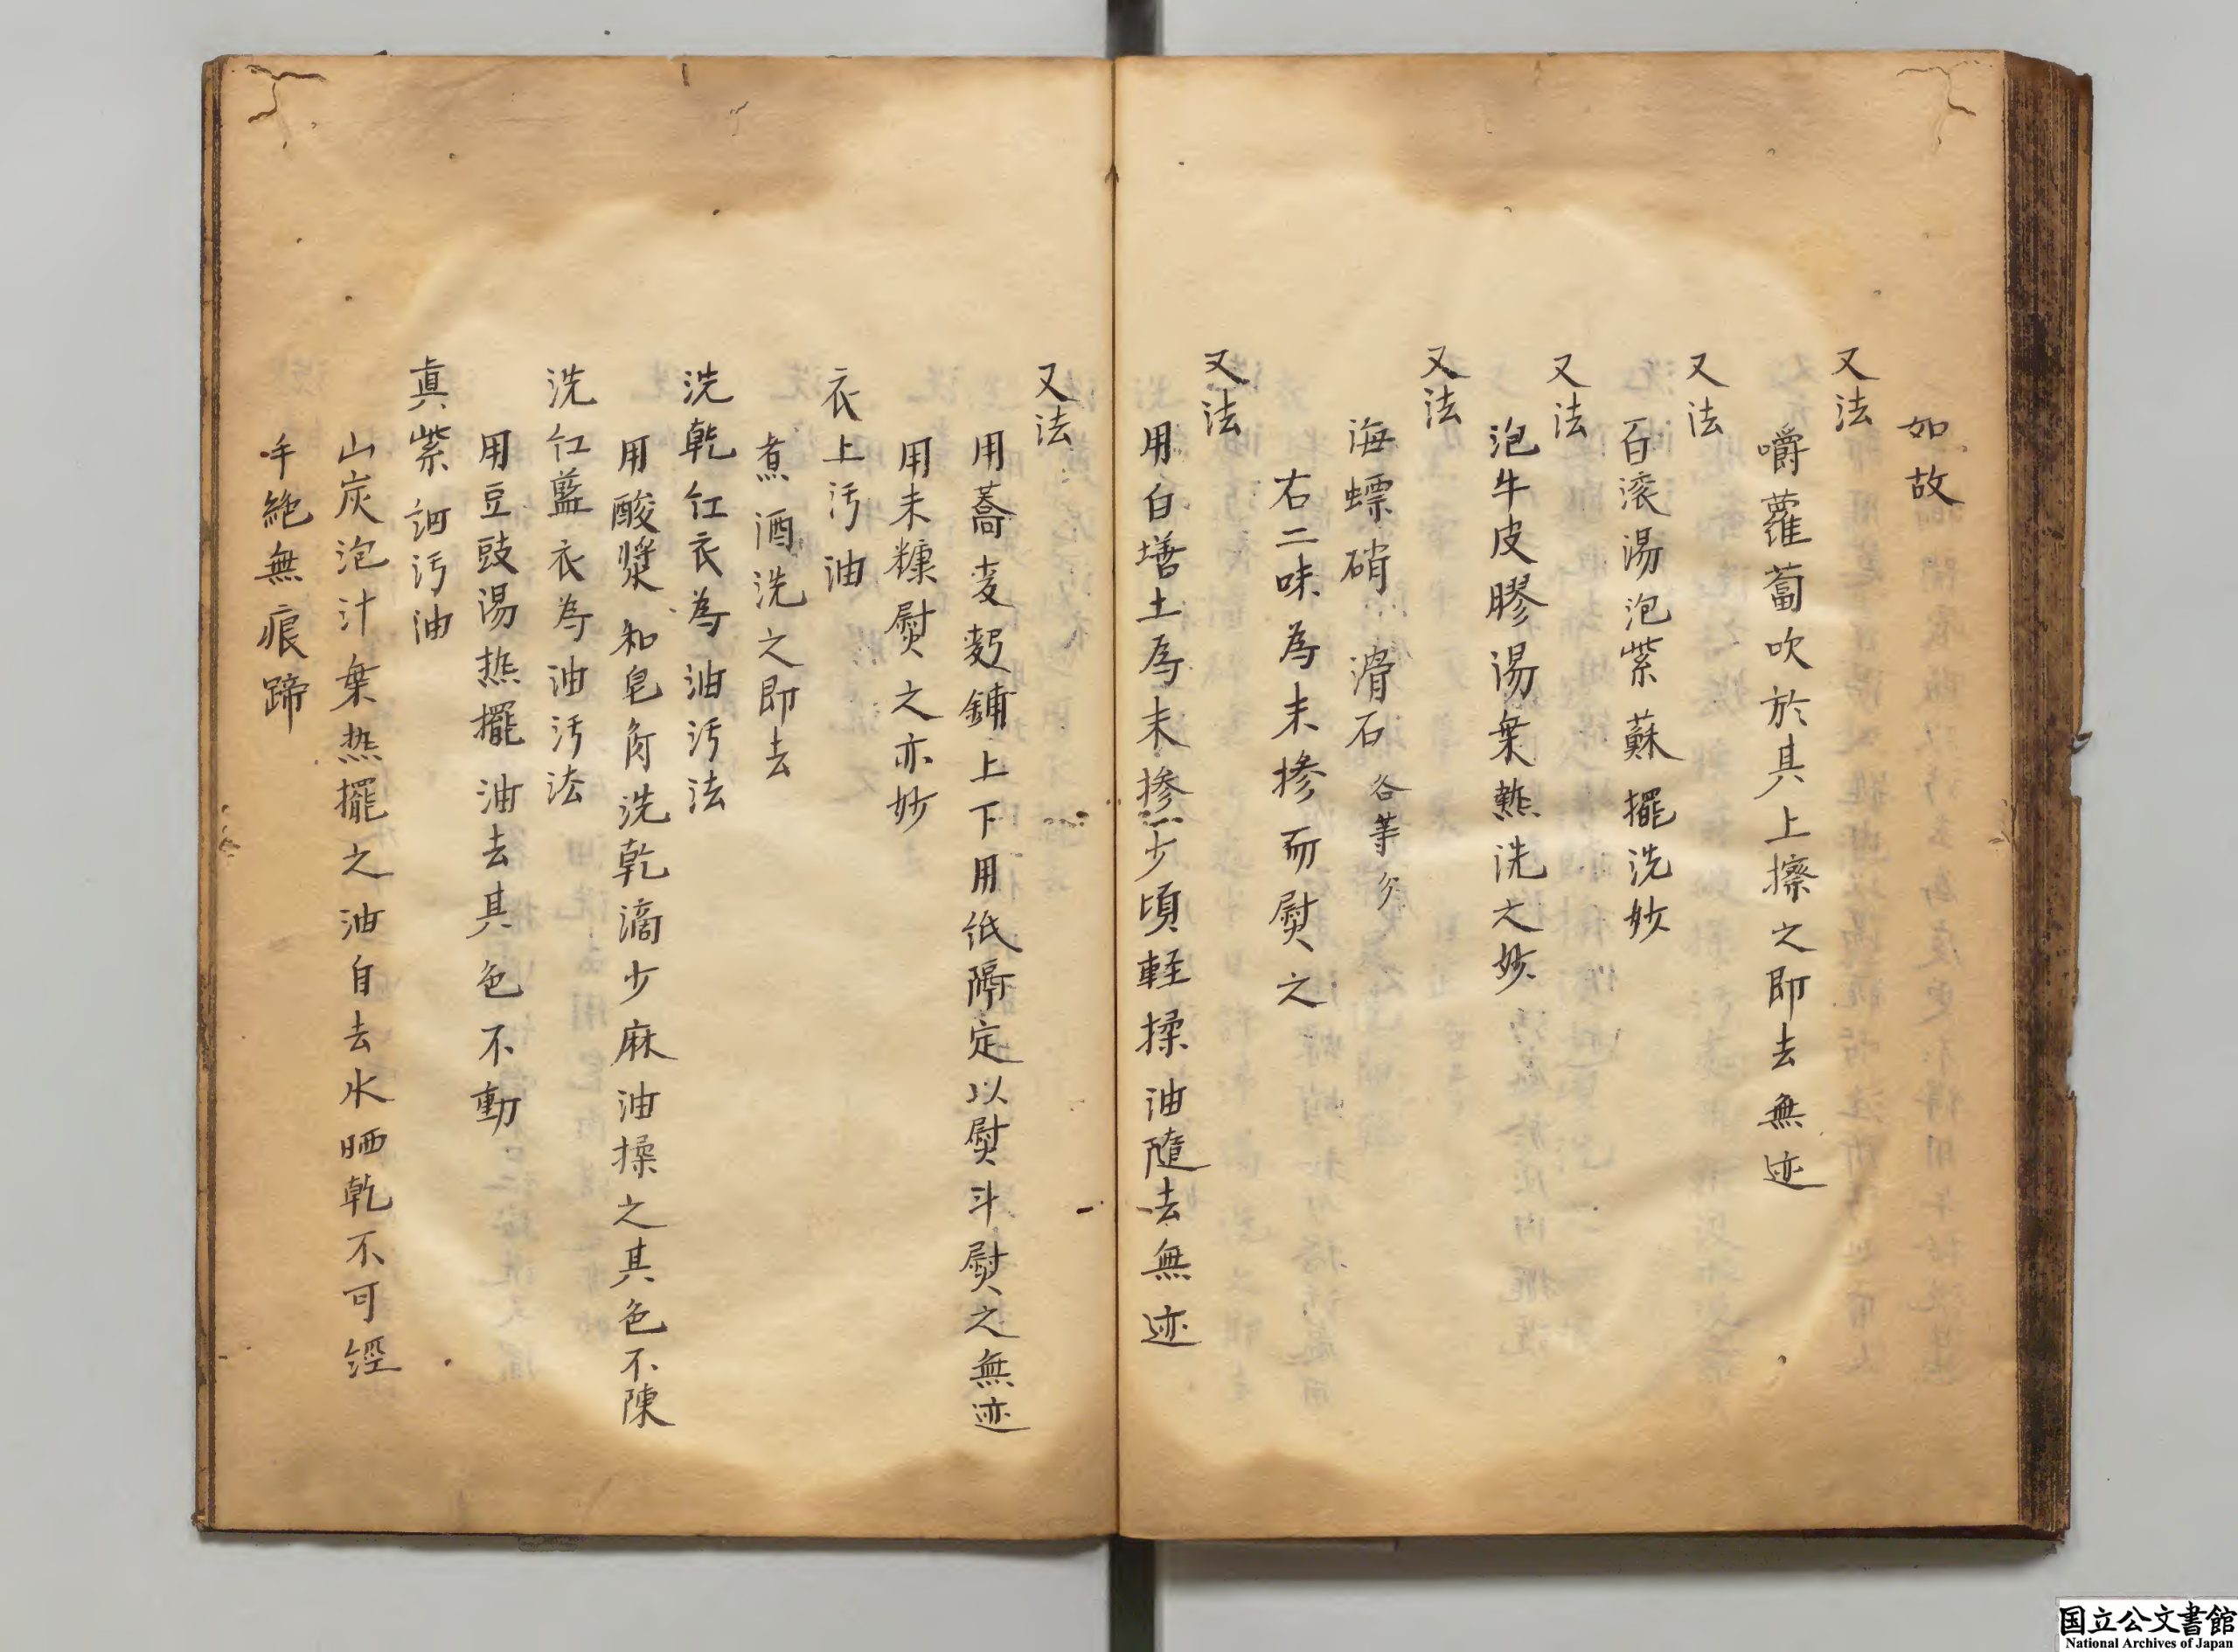 如故
又法
嚼蘿蔔吹於其上擦之即去無迹
又法
百滚湯泡紫蘇擺洗妙
又法
泡牛皮膠湯乗熱洗之妙
又法
海螵硝 滑石 各等分
右二味為末摻而熨之
又法
用白墡土為末摻少頃軽揉油隨去無迹
又法
用蕎麦麨鋪上下用紙隔定以熨斗熨之無迹
用末糠熨之亦妙
衣上汚油
煮酒洗之即去
洗乾红衣為油汚法
用酸漿和皂角洗乾滴少麻油揉之其色不陳
洗红藍衣為油汚法
用豆豉湯热擺油去其色不動
真紫汚油
山炭泡汁乗热擺之油自去水晒乾不可經
手絶無痕蹄
国立公文書館
National Archives of Japan